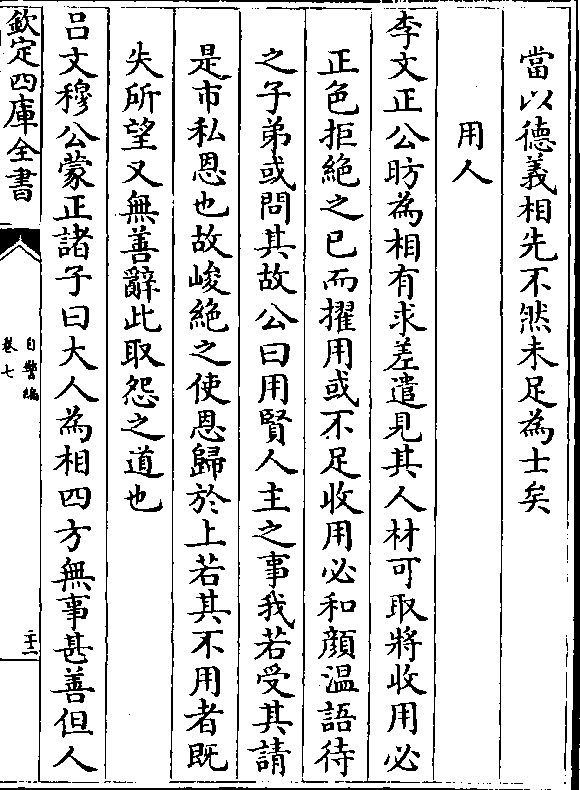 當以德義相先不然未足為士矣
用人
李文正公昉為相有求差遣見其人材可取將收用必
正色拒絶之已而擢用或不足收用必和顔温語待
之子弟或問其故公曰用賢人主之事我若受其請
是市私恩也故峻絶之使恩歸於上若其不用者既
失所望又無善辭此取怨之道也
吕文穆公蒙正諸子曰大人為相四方無事甚善但人
欽定四庫全書
自警編
卷七
二十二